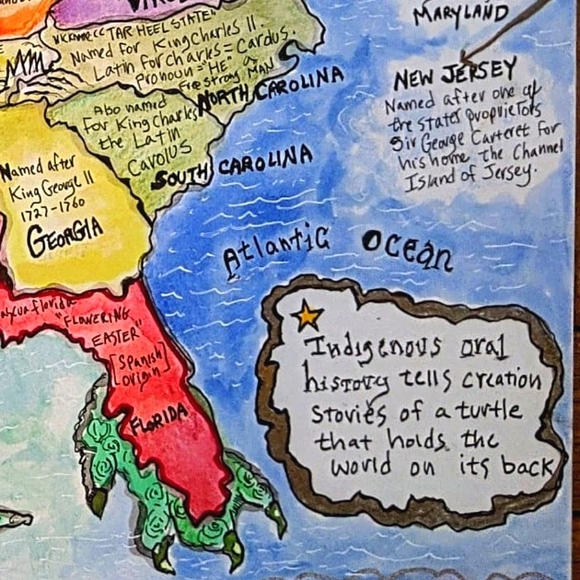 NICKNAME "TAR HEEL STATE"
Named for King Charles II.
Latin for charles = Carolus.
Pronoun = "HE" a
free strong MAN
NORTH CAROLINA
Also named
for King Charles
the Latin
CAROLUS
SOUTH CAROLINA
Named after
King George II
1727-1760
GEORGIA
florida
"FLOWERING
EASTER"
[Spanish
origin]
FLORIDA
MARYLAND
NEW JERSEY
Named after one of
the states proprietors
Sir George Carteret for
his home, the Channel
Island of Jersey.
Atlantic Ocean
Indigenous oral
history tells creation
stories of a turtle
that holds the
world on its back